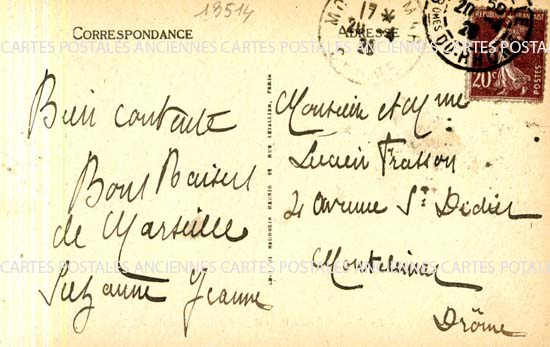 13514
CORRESPONDANCE
ADRESSE
17 *
RÉPUBLIQUE FRANÇAISE
20c
POSTES
Bien contente
Bons Baisers
de Marseille
Suzanne Jeanne
Monsieur et Mme
Lucien Frasson
21 Avenue St Didier
Montelimar
Drôme
CARTES POSTALES ANCIENNES CARTES POSTALES ANCIENNES CARTES POSTALES
CARTES POSTALES ANCIENNES CARTES POSTALES ANCIENNES CARTES POTALES